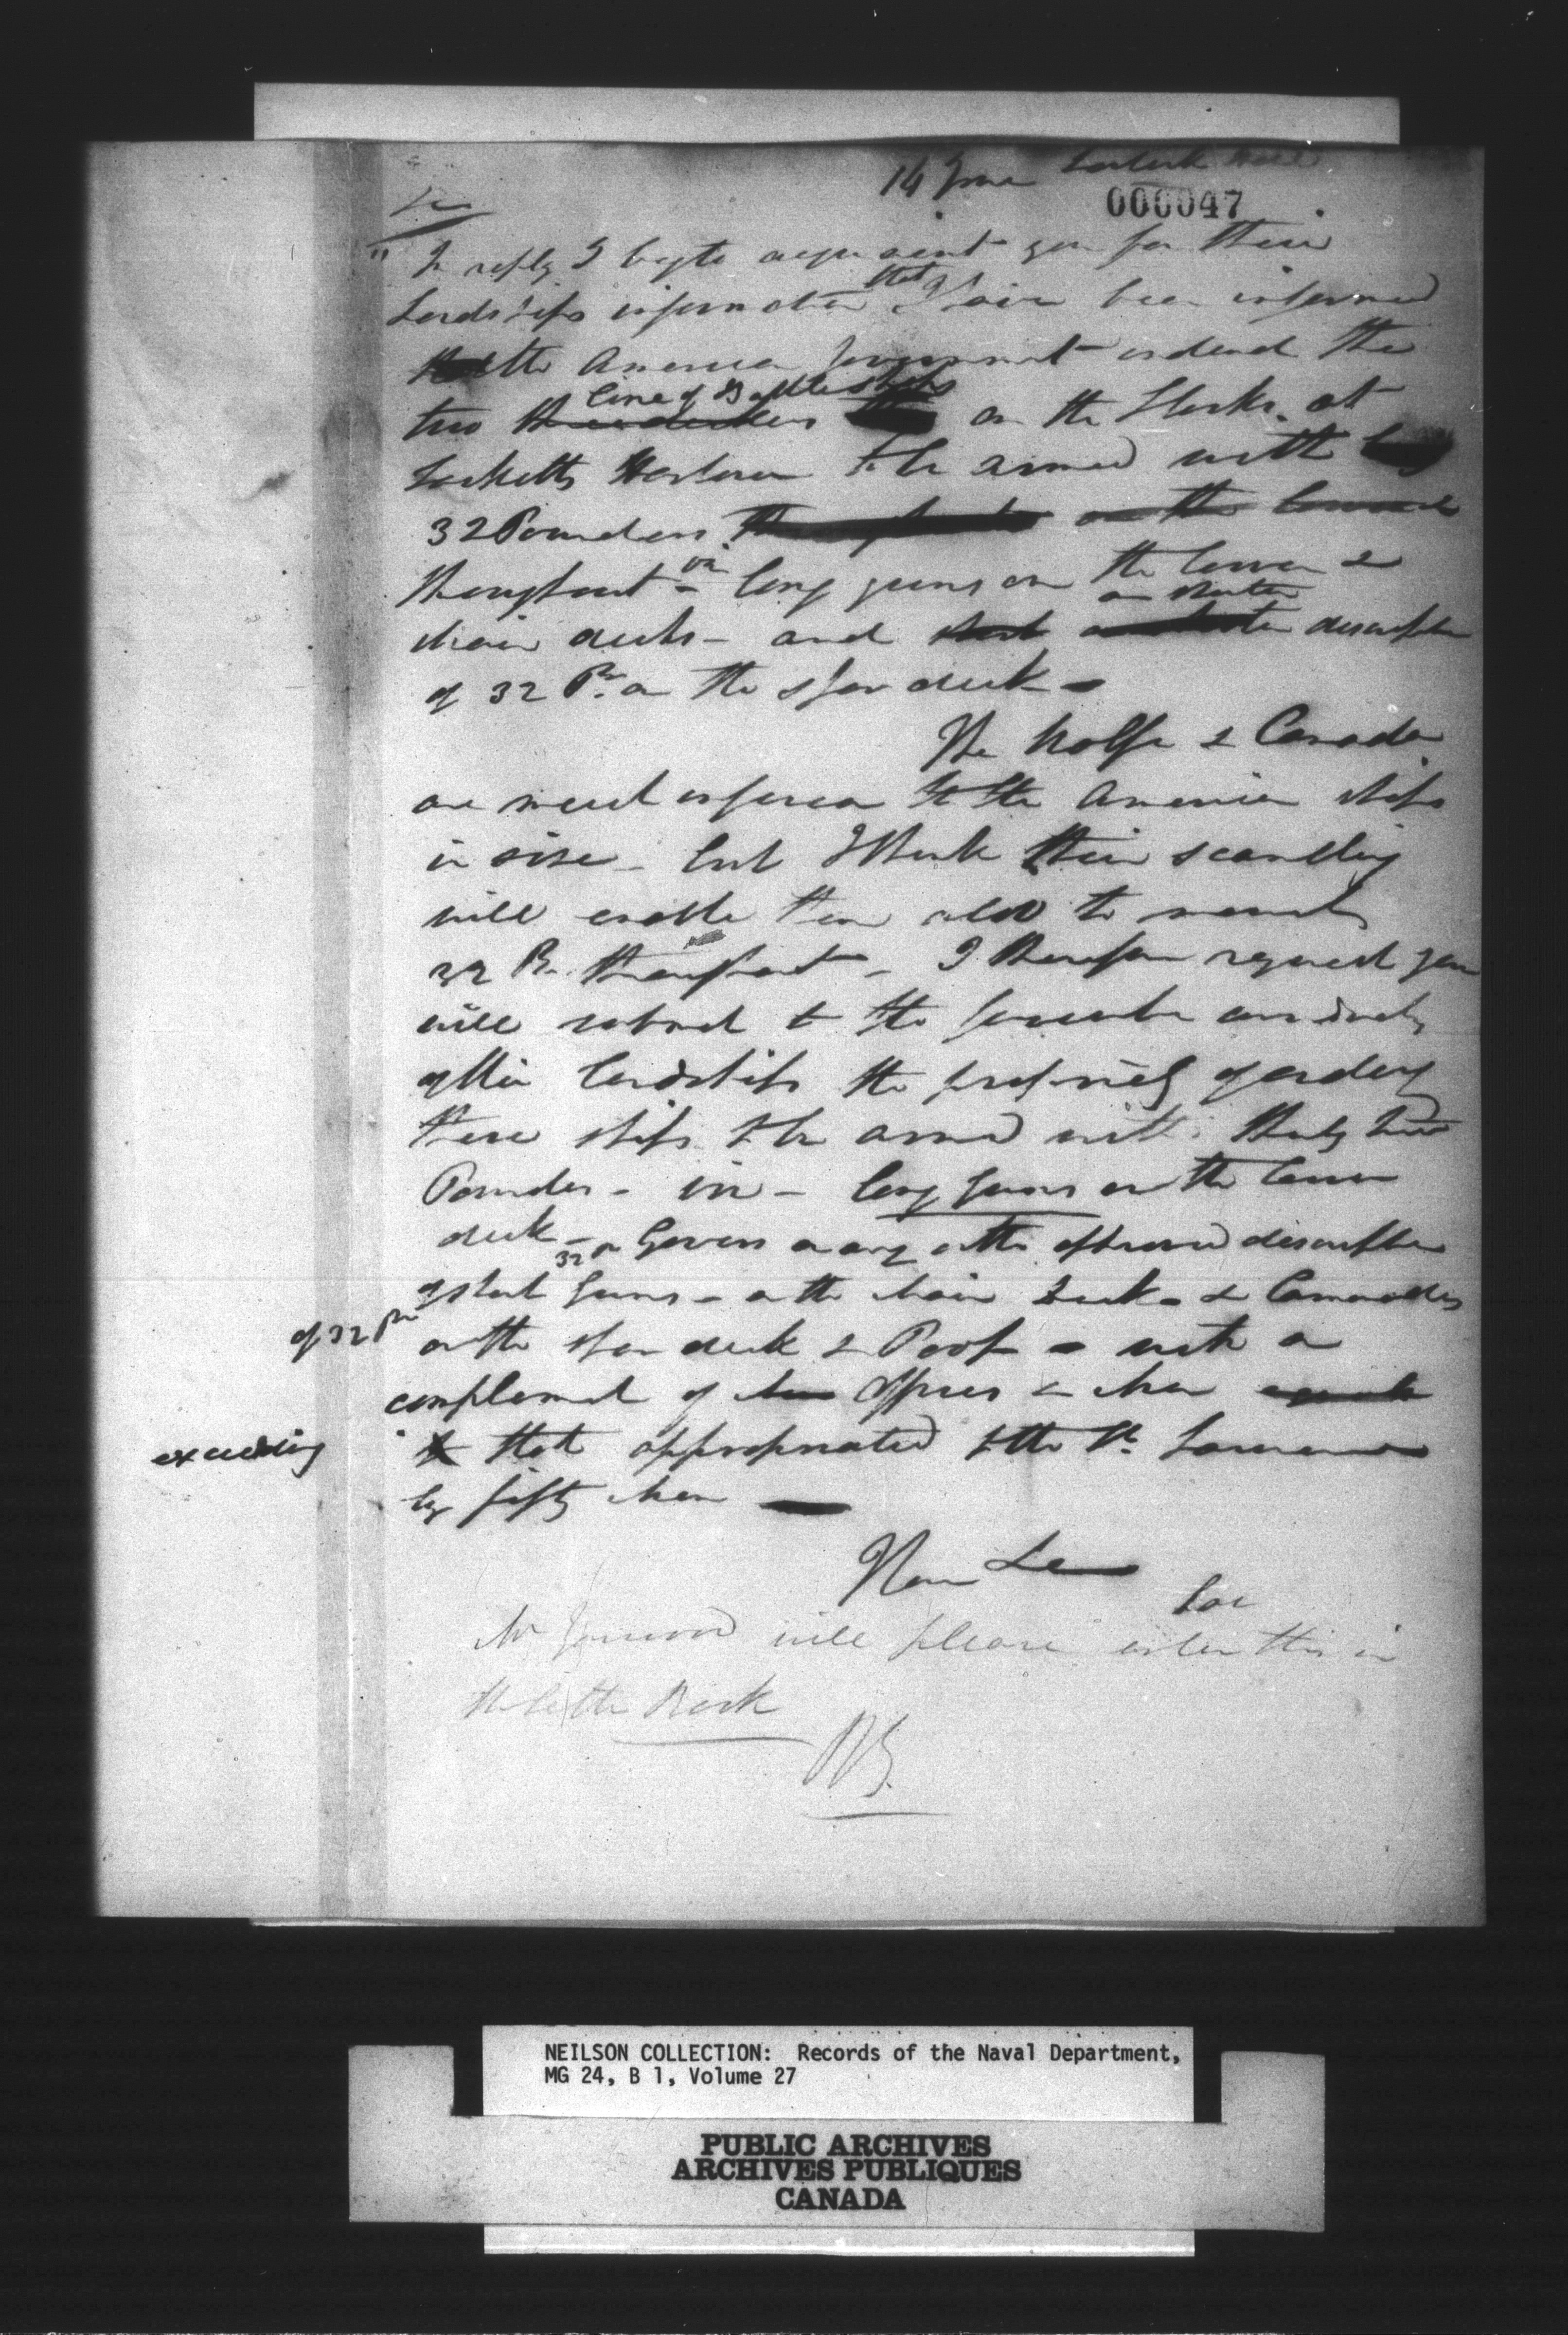 14 June
000047
In reply I beg to acquaint you for their
Lordships information that I have been informed
the American Government ordered the
two three deckers Line of Battle ships on the Stocks at
Sacketts Harbour to be armed with long
32 Pounders
throughout - viz long guns on the lower &
main decks - and short a shorter description
of 32 Pr. on the spar deck -
The Wolfe & Canada
are much inferior to the American ships
in size - but I think their scantling
will enable them also to mount
32 Prs. throughout - I therefore request you
will submit to the favourable consideration
of their Lordships the propriety of ordering
these ships to be armed with thirty two
Pounders - viz - long guns on the lower
deck - 32 Pr Govers or any other approved description
of short Guns - on the Main Deck - & Carronades
of 32 Prs
on the spar deck & Poop - with a
complement of men Officers & Men equal
exceeding
to that appropriated to the St. Lawrence
by fifty Men
I have &c
Mr will please enter this in
the letter Book